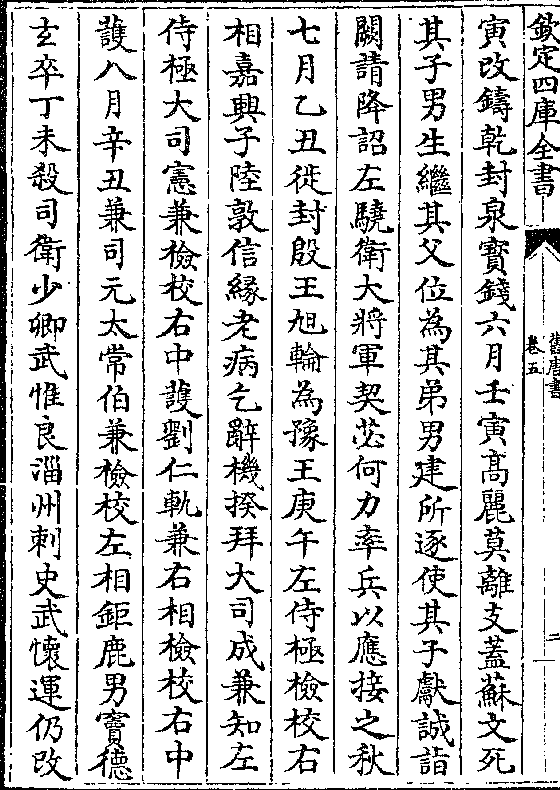 欽定四庫全書
舊唐書
卷五
二
寅改鑄乾封泉寳錢六月壬寅髙麗莫離支蓋蘇文死
其子男生繼其父位為其弟男建所逐使其子獻誠詣
闕請降詔左驍衛大將軍契苾何力率兵以應接之秋
七月乙丑徙封殷王旭輪為豫王庚午左侍極檢校右
相嘉興子陸敦信縁老病乞辭機揆拜大司成兼知左
侍極大司憲兼檢校右中䕶劉仁軌兼右相檢校右中
䕶八月辛丑兼司元太常伯兼檢校左相鉅鹿男竇德
𤣥卒丁未殺司衛少卿武惟良淄州刺史武懐運仍改